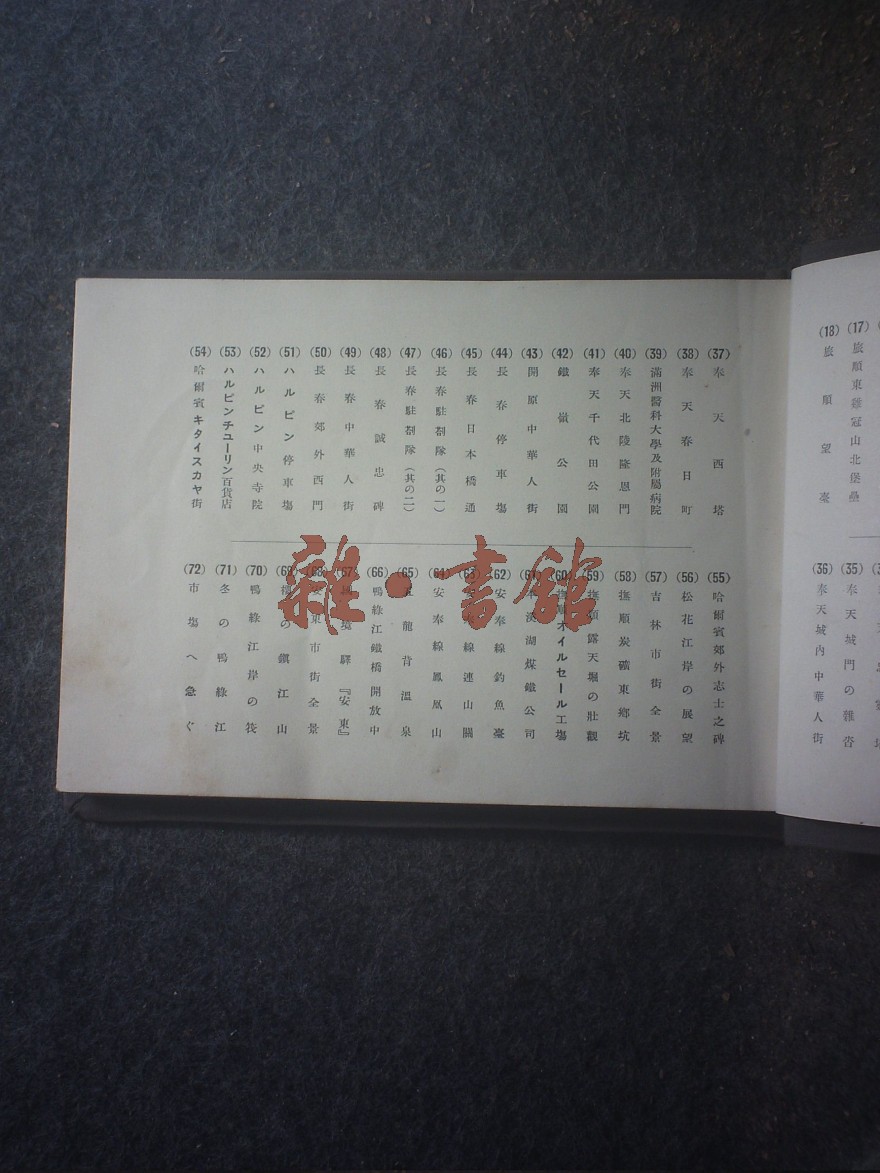 (17) 旅順東雞冠山北堡壘
(18) 旅順望臺
(35) 奉天城門の雜沓
(36) 奉天城内中華人街
(37) 奉天西塔
(38) 奉天春日町
(39) 滿洲醫科大學及附屬病院
(40) 奉天北陵隆恩門
(41) 奉天千代田公園
(42) 鐵嶺公園
(43) 開原中華人街
(44) 長春停車塲
(45) 長春日本橋通
(46) 長春駐剳隊(其の一)
(47) 長春駐剳隊(其の二)
(48) 長春誠忠碑
(49) 長春中華人街
(50) 長春郊外西門
(51) ハルピン停車塲
(52) ハルピン中央寺院
(53) ハルピンチユーリン百貨店
(54) 哈爾賓キタイスカヤ街
(55) 哈爾賓郊外志士之碑
(56) 松花江岸の展望
(57) 吉林市街全景
(58) 撫順炭礦東鄉坑
(59) 撫順露天堀の壯觀
(60) 撫順オイルセール工塲
(61) 溪湖煤鐵公司
(62) 安奉線釣魚臺
(63) 安奉線連山關
(64) 安奉線鳳凰山
(65) 五龍背溫泉
(66) 鴨綠江鐵橋開放中
(67) 境驛『安東』
(68) 安東市街全景
(69) の鎭江山
(70) 鴨綠江岸の筏
(71) 冬の鴨綠江
(72) 市塲へ急ぐ
雜·書館